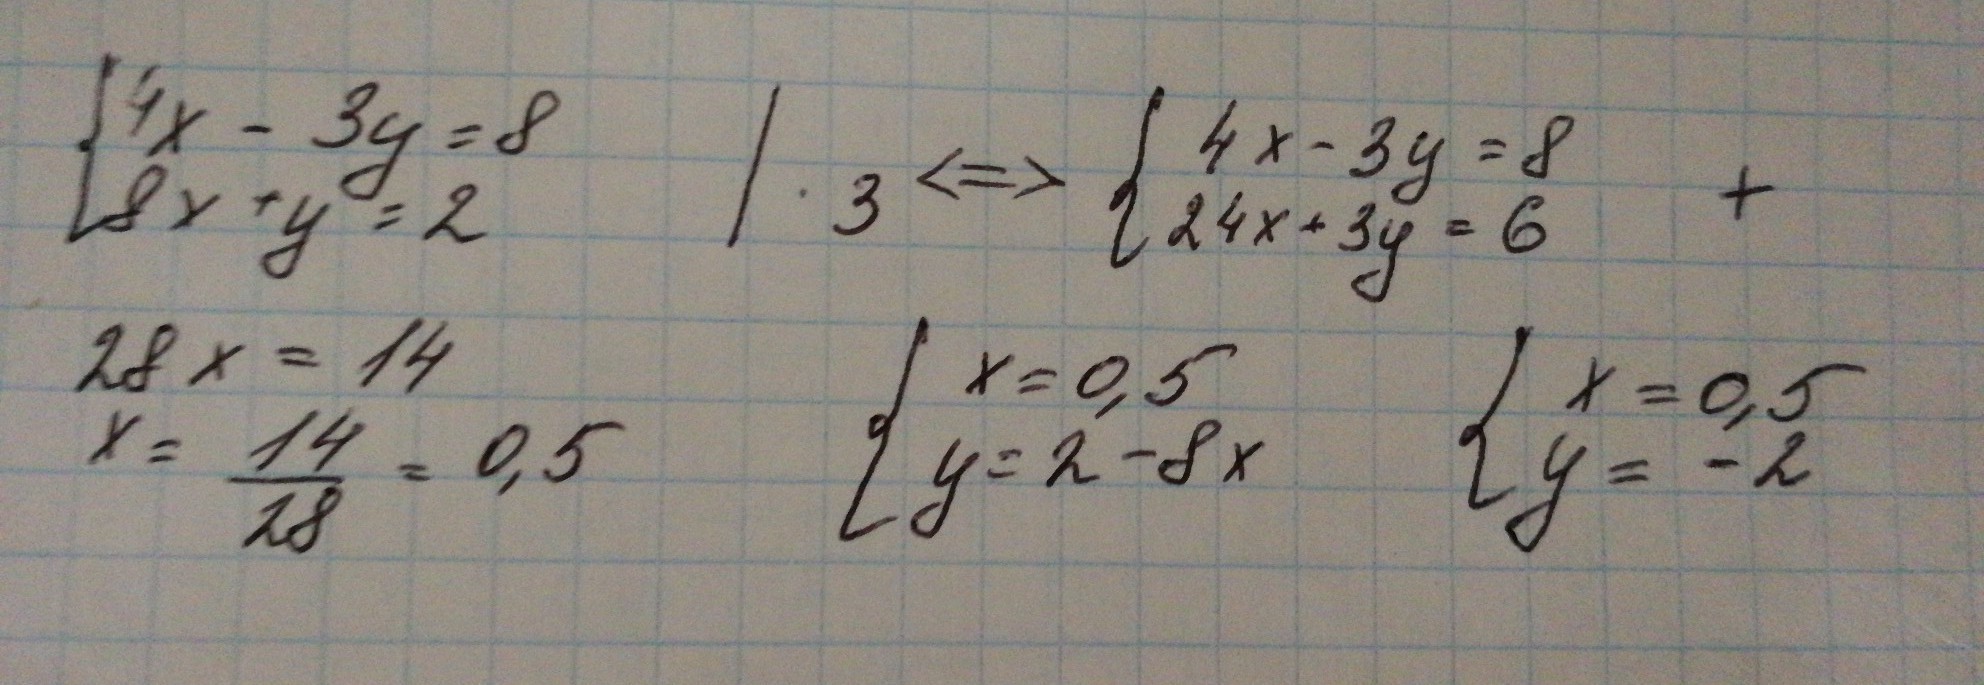 {4x - 3y = 8
8x + y = 2 | · 3 <=> {4x - 3y = 8
24x + 3y = 6 +
28x = 14
x = 14/28 = 0,5
{x = 0,5
y = 2 - 8x
{x = 0,5
y = -2